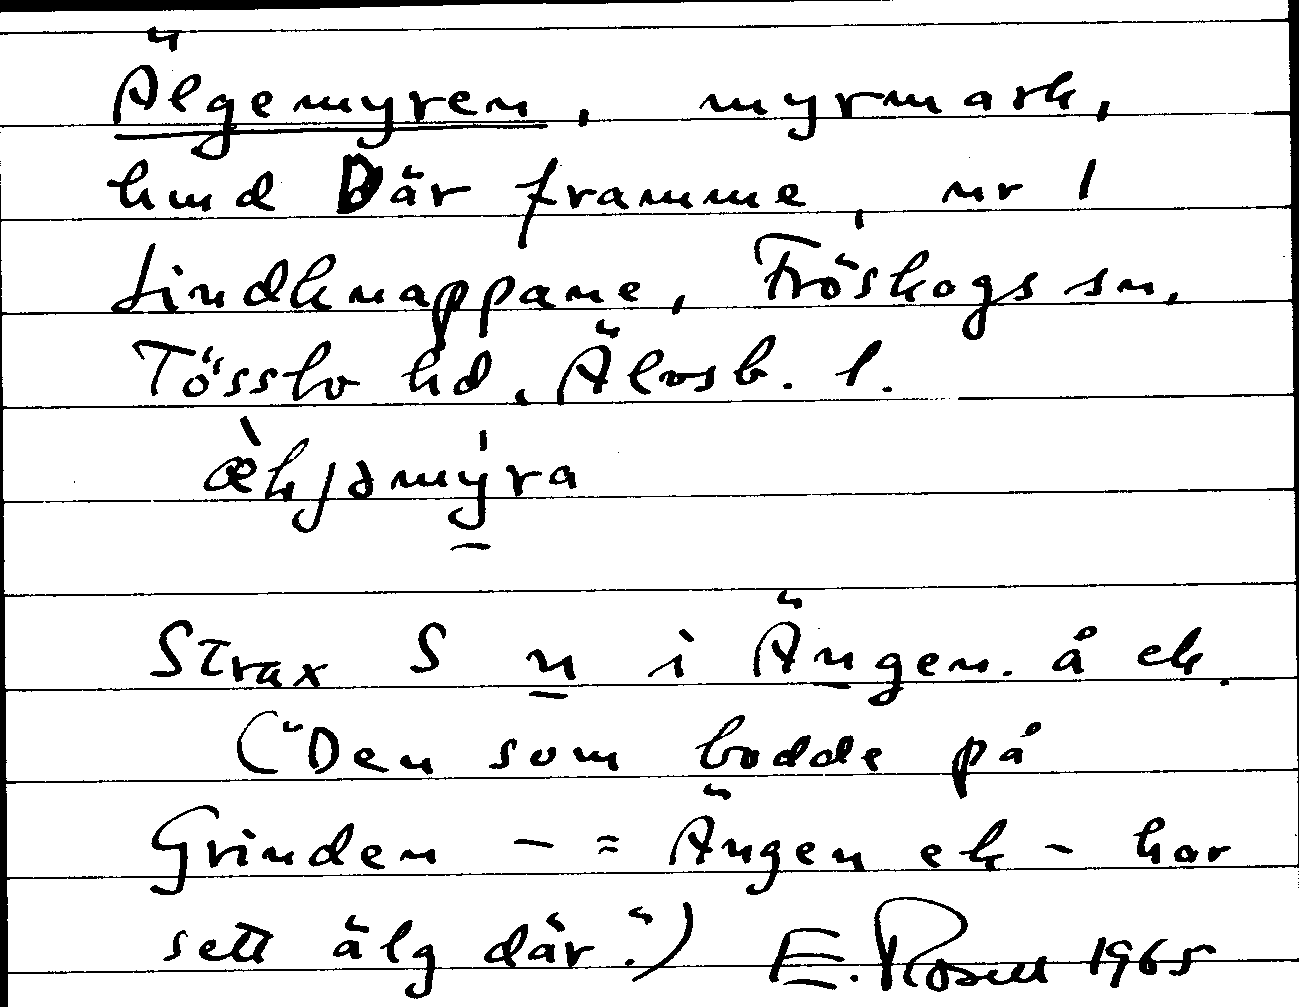 Älgemyren, myrmark,
hmd Där framme, nr 1
Lindknappane, Fröskogs sn,
Tössbo hd, Älvsb. l.
æ̀ljəmýra
Strax S n i Ängen. å ek.
("Den som bodde på
Grinden – = Ängen ek – har
sett älg där.") E. Rosell 1965